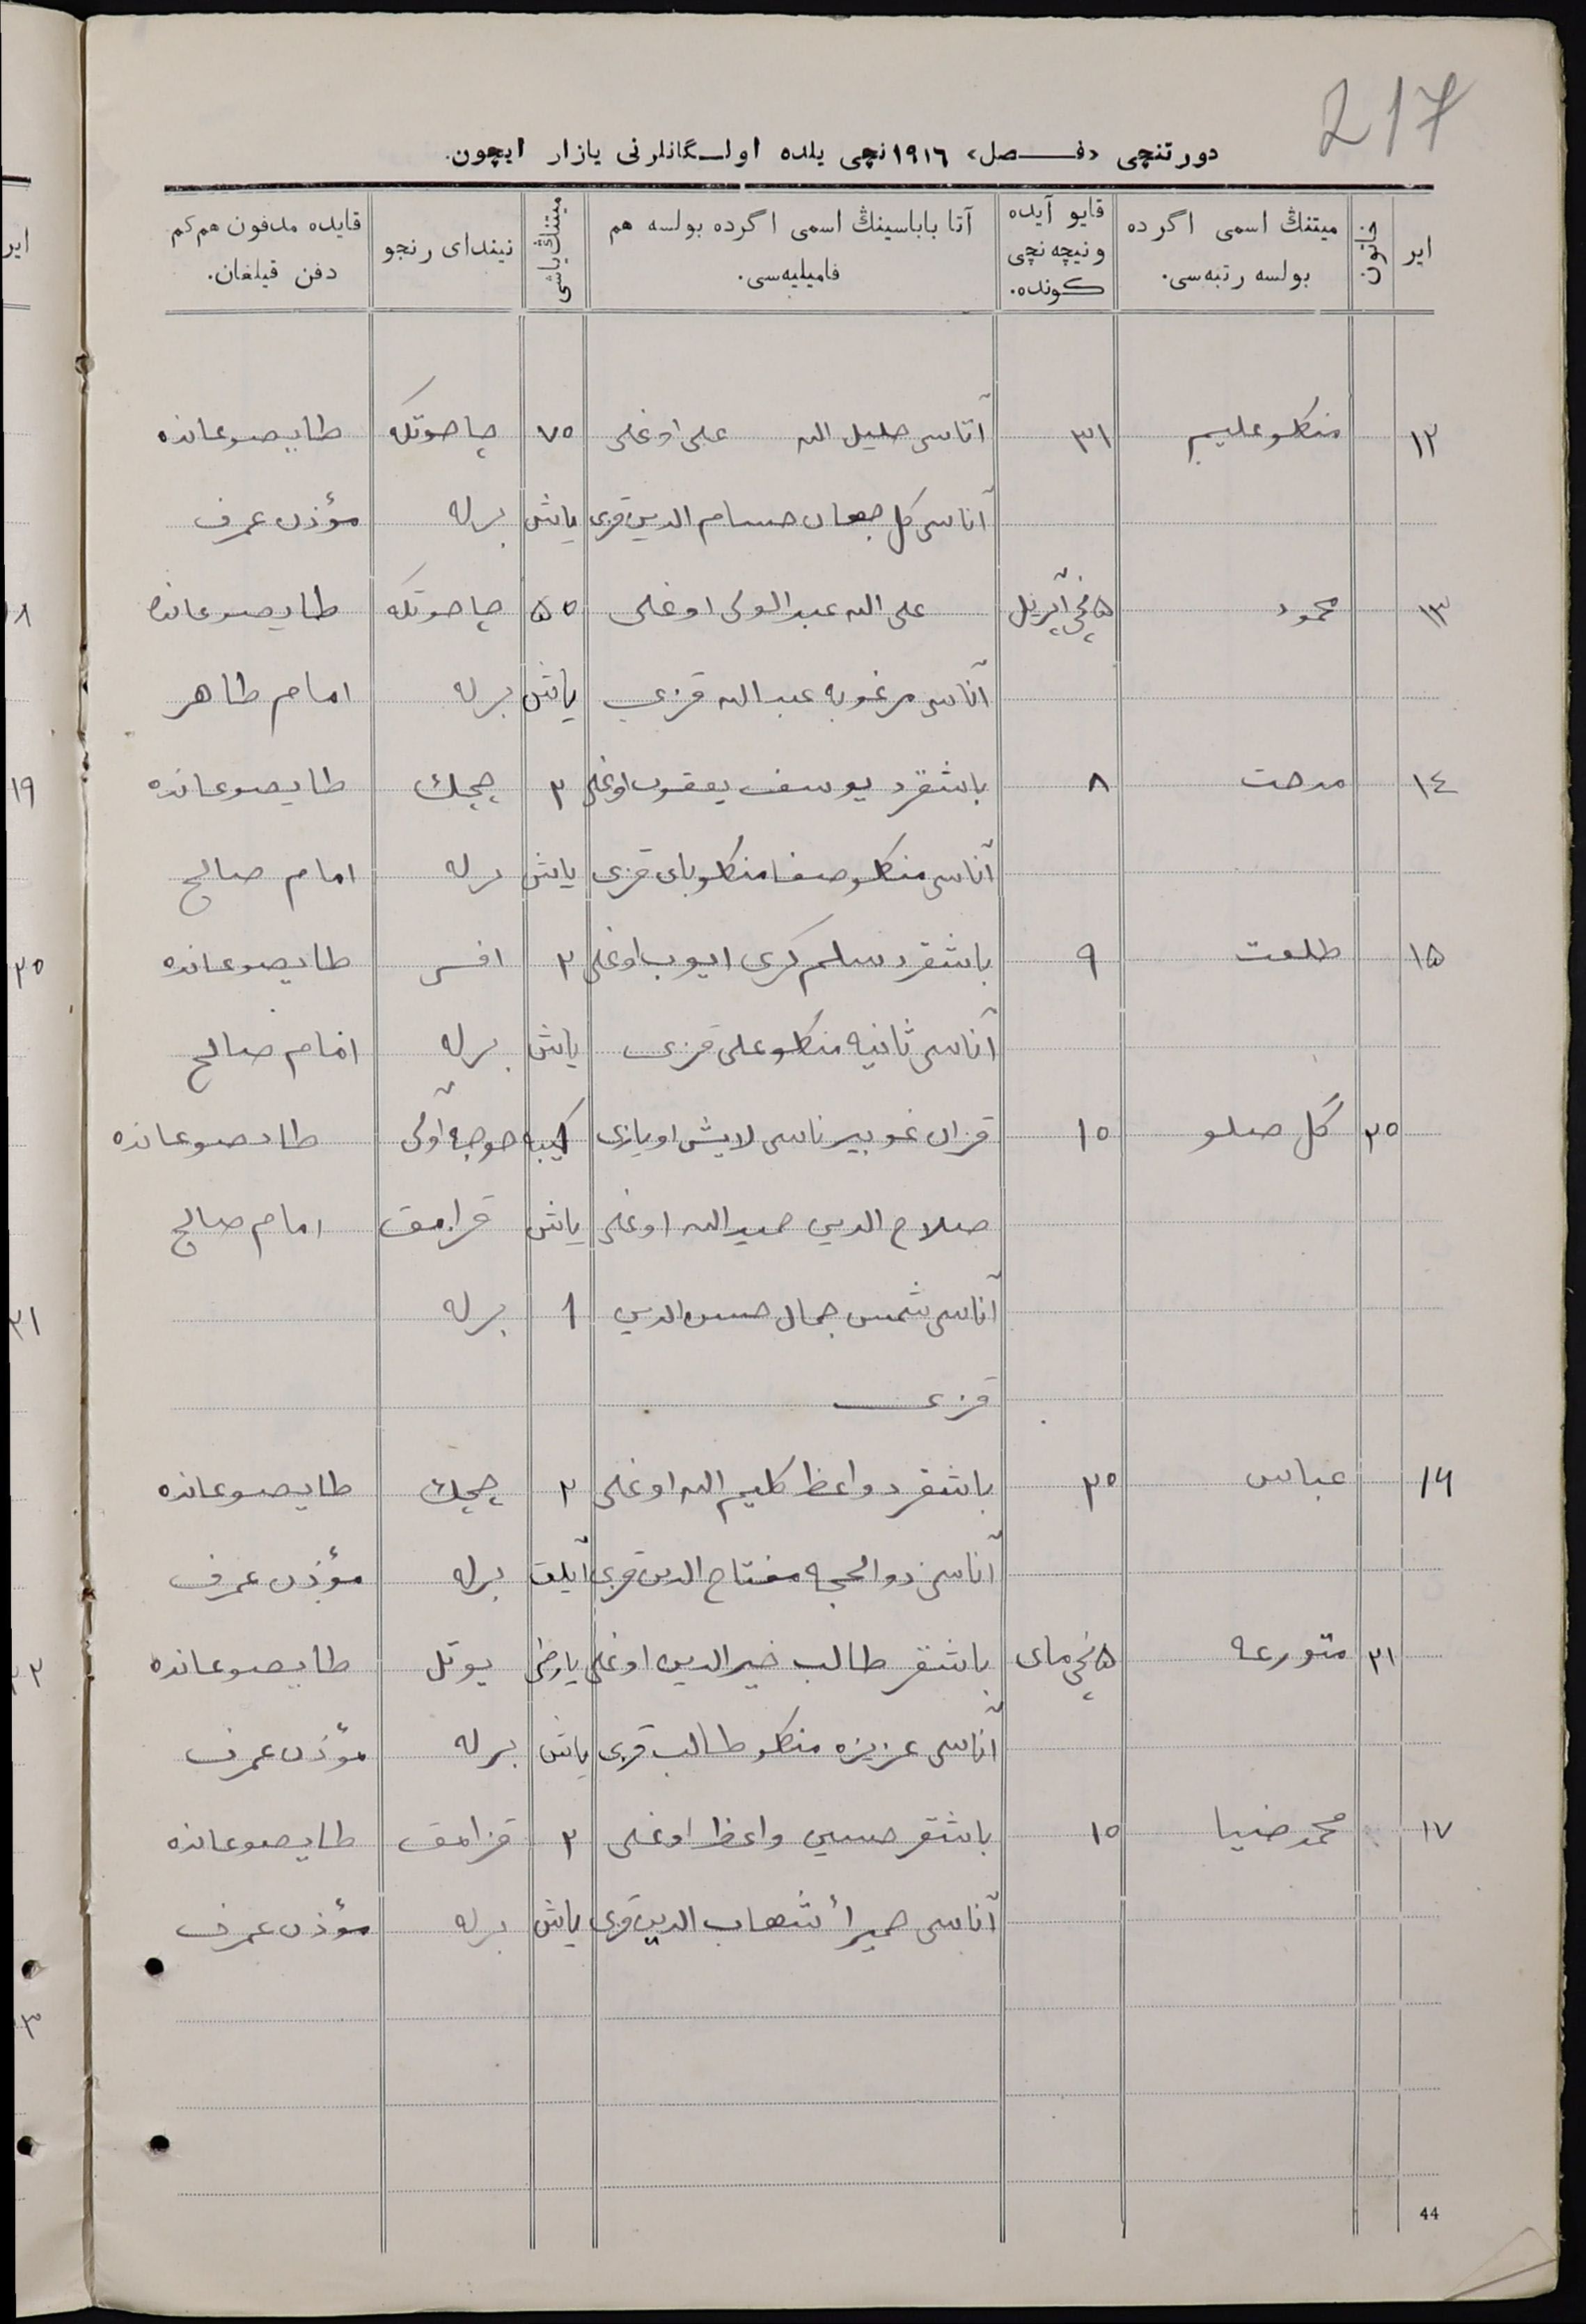 217
دورتنچی «فـــصل» ١٩١٦نچی یلده اولـگانلرنی یازار ایچون.
ایر | خاتون | میتنڭ اسمی اگرده بولسه رتبه‌سی. | قایو آیده و نیچه نچی کونده. | آتا باباسینڭ اسمی اگرده بولسه هم فامیلیه‌سی. | میتنڭ یاشی | نیندای رنجو | قایده مدفون هم کم دفن قیلغان.
١٢ منکلو علیم ٣١ آتاسی خلیل الله علی اوغلی ٧٥ چاحوتکه طایصوغانده
آناسی کل جهان حسام الدین قزی یاش برله مؤذن عمرف
١٣ محمود ۵نچی آپریل علی الله عبدالولی اوغلی ۵۵ چاحوتکه طایصوغانده
آناسی مرغوبه عبدالله قزی یاش برله امام طاهر
١٤ مدحت ٨ باشقرد یوسف یعقوب اوغلی ٢ چچك طایصوغانده
آناسی منکلوصفا منکلوبای قزی یاش برله امام صالح
١۵ طلعت ٩ باشقرد سلم کری ایوب اوغلی ٢ طایصوغانده
آناسی ثانیه منکلو علی قزی یاش برله امام صالح
٢٠ گل صلو ١٠ قزان غوبیرناسی لایش اویازی طایصوغانده
صلاح الدین حمیدالله اوغلی یاش قزامق امام صالح
آناسی شمس جمال حسن الدین 1 برله
قزی
١٦ عباس ٢٠ باشقرد واعظ کلیم الله اوغلی ٢ چچك طایصوغانده
آناسی ذوالحجه مفتاح الدین قزی آیلق برله مؤذن عمرف
٢١ متورعه ۵نچی مای باشقر طالب خیرالدین اوغلی یارطی یوتل طایصوغانده
آناسی عزیزه منکلو طالب قزی یاش برله مؤذن عمرف
١٧ محمد ضیا ١٠ باشقر حسین واعظ اوغلی ٢ قزامق طایصوغانده
آناسی حمیرأ شهاب الدین قزی یاش برله مؤذن عمرف
44
ایر
١٩
٢٠
٢١